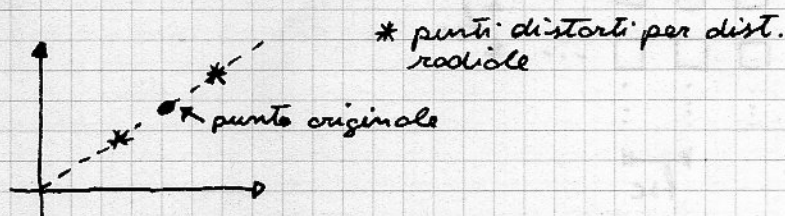 * punti distorti per dist.
radiale
punto originale